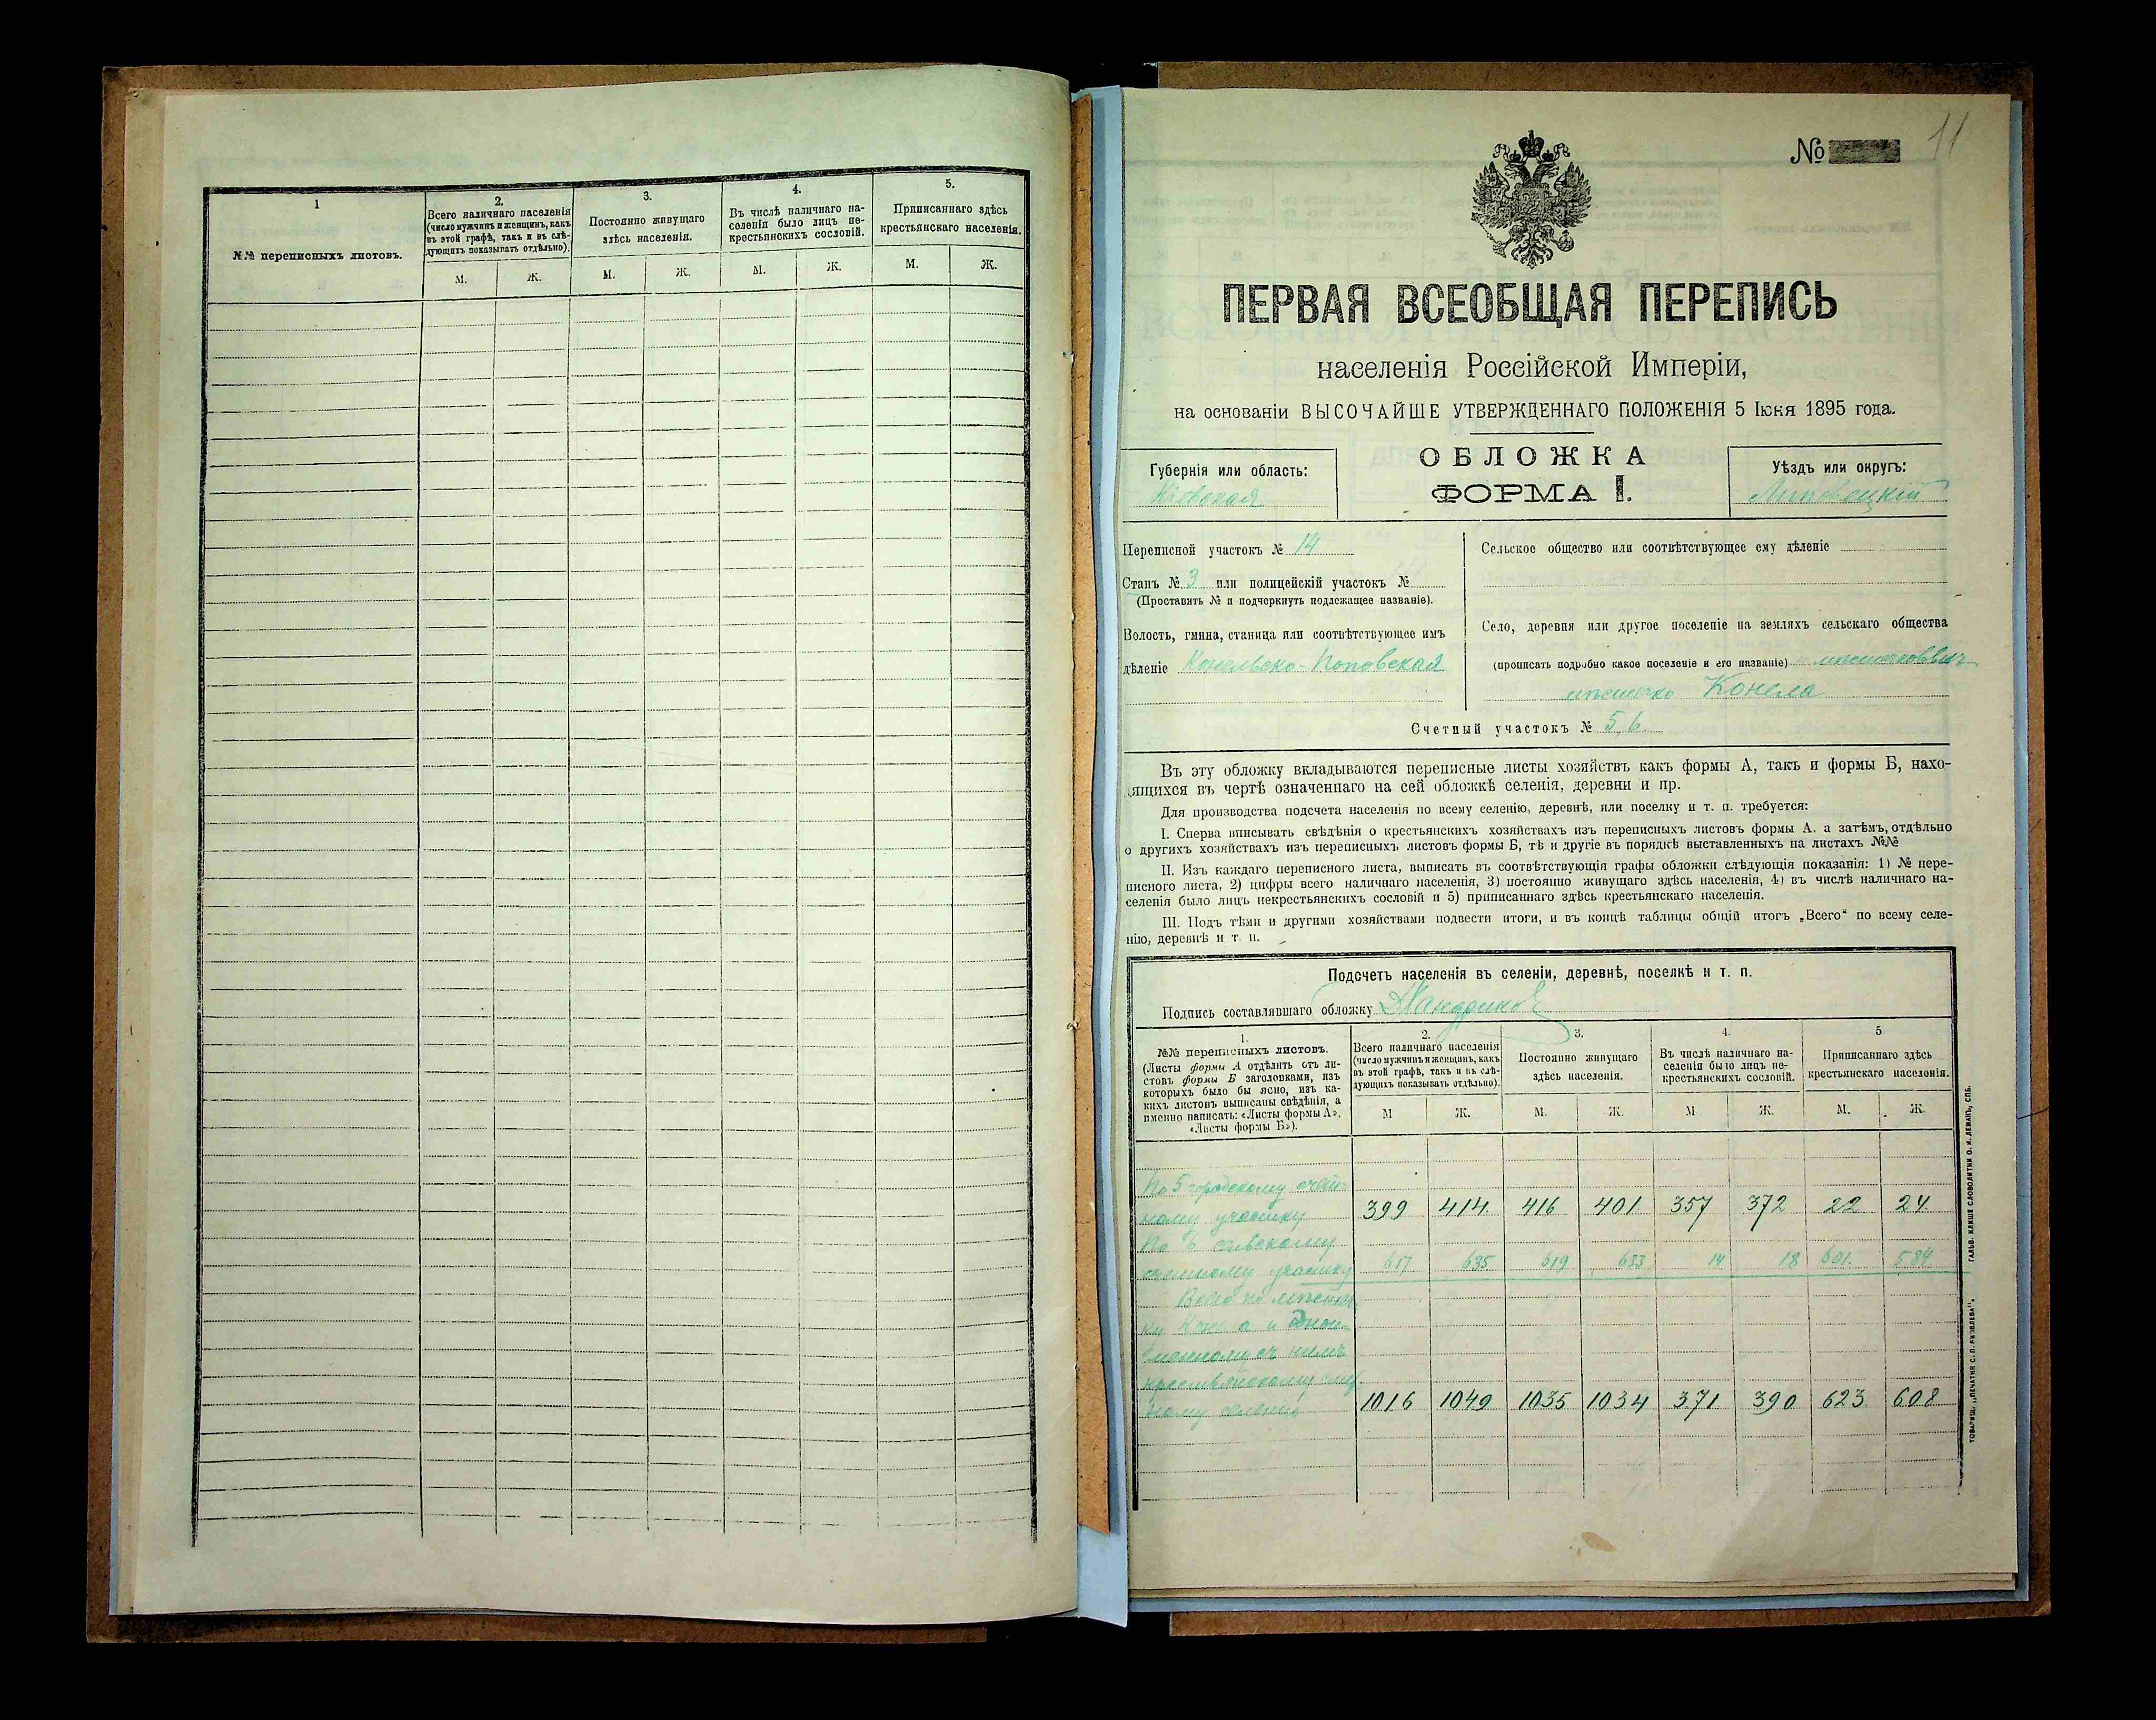 1
№№ переписныхъ листовъ.
2.
Всего наличнаго населенія
(число мужчинъ и женщинъ, какъ
въ этой графѣ, такъ и въ слѣ-
дующихъ показывать отдѣльно).
3.
Постоянно живущаго
здѣсь населенія.
4.
Въ числѣ наличнаго на-
селенія было лицъ не-
крестьянскихъ сословій.
5.
Приписаннаго здѣсь
крестьянскаго населенія.
М. Ж. М. Ж. М. Ж. М. Ж.
№
11
ПЕРВАЯ ВСЕОБЩАЯ ПЕРЕПИСЬ
населенія Россійской Имперіи,
на основаніи ВЫСОЧАЙШЕ УТВЕРЖДЕННАГО ПОЛОЖЕНІЯ 5 Іюня 1895 года.
Губернія или область:
Кіевская
ОБЛОЖКА
ФОРМА I.
Уѣздъ или округъ:
Липовецкій
Переписной участокъ № 14
Станъ № 3 или полицейскій участокъ №
(Проставить № и подчеркнуть подлежащее названіе).
Волость, гмина, станица или соотвѣтствующее имъ
дѣленіе Конельско-Поповская
Сельское общество или соотвѣтствующее ему дѣленіе
Село, деревня или другое поселеніе на земляхъ сельскаго общества
(прописать подробно какое поселеніе и его названіе)
мѣстечко Конела
Счетный участокъ № 5, 6.
Въ эту обложку вкладываются переписные листы хозяйствъ какъ формы А, такъ и формы Б, нахо-
дящихся въ чертѣ означеннаго на сей обложкѣ селенія, деревни и пр.
Для производства подсчета населенія по всему селенію, деревнѣ, или поселку и т. п. требуется:
I. Сперва вписывать свѣдѣнія о крестьянскихъ хозяйствахъ изъ переписныхъ листовъ формы А. а затѣмъ, отдѣльно
о другихъ хозяйствахъ изъ переписныхъ листовъ формы Б, тѣ и другіе въ порядкѣ выставленныхъ на листахъ №№
II. Изъ каждаго переписного листа, выписать въ соотвѣтствующія графы обложки слѣдующія показанія: 1) № пере-
писного листа, 2) цифры всего наличнаго населенія, 3) постоянно живущаго здѣсь населенія, 4) въ числѣ наличнаго на-
селенія было лицъ некрестьянскихъ сословій и 5) приписаннаго здѣсь крестьянскаго населенія.
III. Подъ тѣми и другими хозяйствами подвести итоги, и въ концѣ таблицы общій итогъ „Всего“ по всему селе-
нію, деревнѣ и т. п.
Подсчетъ населенія въ селеніи, деревнѣ, поселкѣ и т. п.
Подпись составлявшаго обложку
1.
№№ переписныхъ листовъ.
(Листы формы А отдѣлить отъ ли-
стовъ формы Б заголовками, изъ
которыхъ было бы ясно, изъ ка-
кихъ листовъ выписаны свѣдѣнія, а
именно написать: «Листы формы А»,
«Листы формы Б»).
2.
Всего наличнаго населенія
(число мужчинъ и женщинъ, какъ
въ этой графѣ, такъ и въ слѣ-
дующихъ показывать отдѣльно).
3.
Постоянно живущаго
здѣсь населенія.
4.
Въ числѣ наличнаго на-
селенія было лицъ не-
крестьянскихъ сословій.
5
Приписаннаго здѣсь
крестьянскаго населенія.
М Ж. М. Ж. М Ж. М. Ж.
По 5 городскому счет-
ному участку 399 414. 416 401. 357 372 22 24.
По 6 сельскому
счетному участку 617 635 619 633 14 18 601. 584
Всего по мѣстеч
ку Конела и одно
именному съ нимъ
крестьянскому
селенію 1016 1049 1035 1034 371 390 623. 608
ТОВАРИЩ. „ПЕЧАТНЯ С. П. ЯКОВЛЕВА“. ГАЛЬВ. КЛИШЕ СЛОВОЛИТНИ О. И. ЛЕМАНЪ, СПБ.